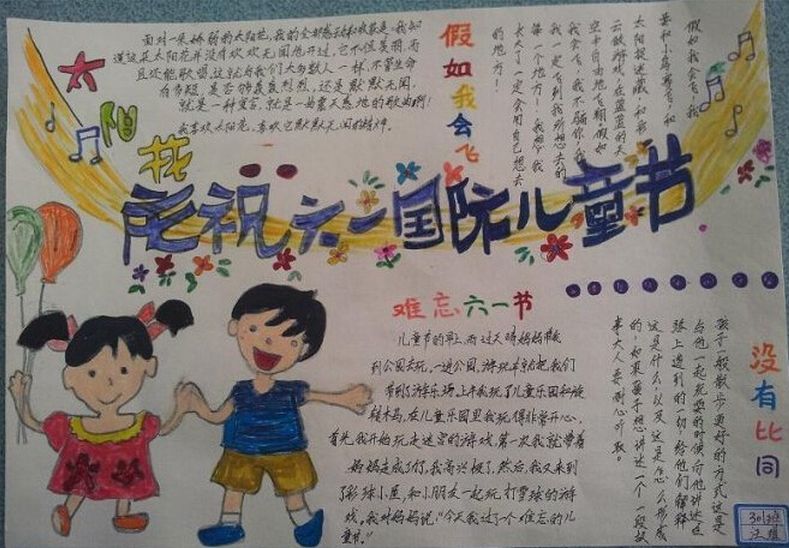 太阳花
面对一朵娇弱的太阳花，我的全部感动和收获是：我知
道这朵太阳花并没有默默无闻地开过，它不但美丽，而
且还能歌唱，这就与我们大多数人一样，不管生命
有长短，是否轰轰烈烈，还是默默无闻，
就是一种寓言，就是一曲震天憾地的歌曲啊！
我喜欢太阳花，喜欢它默默无闻的精神。
假如我会飞
假如我会飞，我
要和小鸟赛飞，和
太阳捉迷藏，和彩
云做游戏，在蓝蓝的天
空中自由地飞翔。假如
我会飞，我不骗你，我
我一定飞到我所想去的
每一个地方！我想，我
长大了一定会用自己想去
的地方！
庆祝六一国际儿童节
难忘六一节
儿童节的早上，雨过天晴，妈妈带我
到公园去玩，一进公园，游玩车就把我们
带到了游乐场，上午我玩了儿童乐园和旋
转木马，在儿童乐园里我玩得非常开心，
首先，我开始玩走迷宫的游戏，第一次我就带着
妈妈走成了功，我高兴极了，然后，我又来到
了彩球小屋，和小朋友一起玩打雪球的游
戏，我对妈妈说：“今天我过了个难忘的儿
童节。”
没有比同
孩子一般散步更好的方式，这是
与他一起玩耍的时候，向他讲述在
路上遇到的一切，给他们解释
这是什么，以及这是怎么形成
的，如果孩子想讲述一个一段故
事，大人要耐心听取。
301班
汪